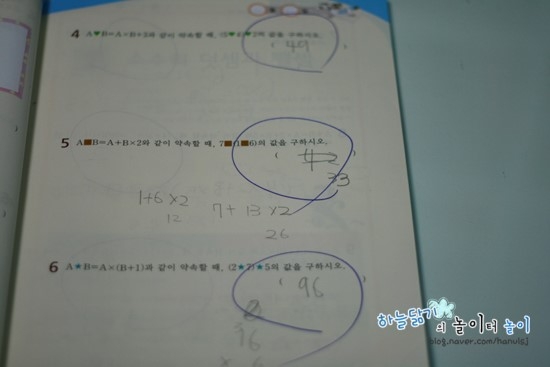 4 A♥B=A×B+3과 같이 약속할 때, (5♥4)♥2의 값을 구하시오.
( 49 )
5 A■B=A+B×2와 같이 약속할 때, 7■(1■6)의 값을 구하시오.
33
1+6×2
12
7+13×2
26
6 A★B=A×(B+1)과 같이 약속할 때, (2★7)★5의 값을 구하시오.
( 96 )
16
하늘닮기의 놀이터 놀이
blog.naver.com/hanulsj